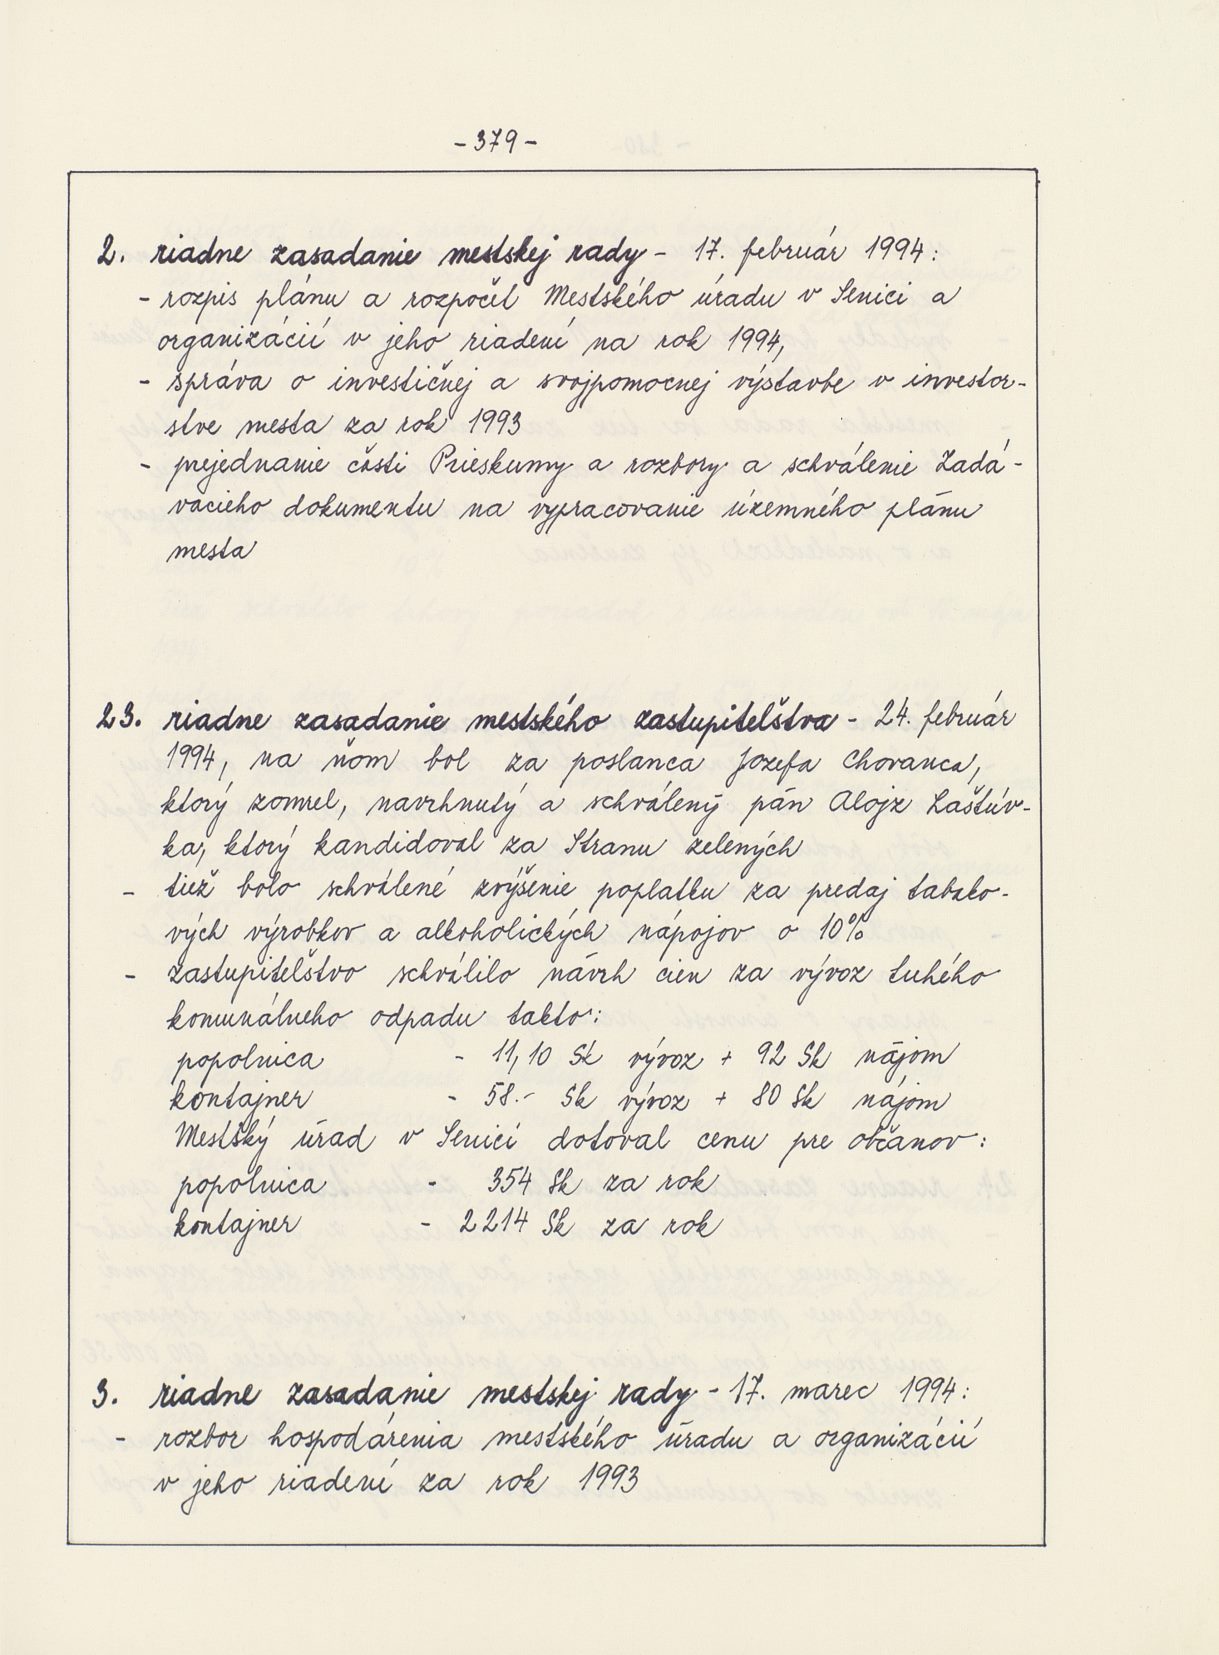 - 379 -
2. riadne zasadanie mestskej rady - 17. február 1994:
- rozpis plánu a rozpočtu Mestského úradu v Senici a
organizácií v jeho riadení na rok 1994,
- správa o investičnej a svojpomocnej výstavbe v investor-
stve mesta za rok 1993
- prejednanie časti Prieskumy a rozbory a schválenie Zadá-
vacieho dokumentu na vypracovanie územného plánu
mesta
23. riadne zasadanie mestského zastupiteľstva - 24. február
1994, na ňom bol za poslanca Jozefa Chovanca,
ktorý zomrel, navrhnutý a schválený pán Alojz Laštúv-
ka, ktorý kandidoval za Stranu zelených
- tiež bolo schválené zvýšenie poplatku za predaj tabako-
vých výrobkov a alkoholických nápojov o 10%
- zastupiteľstvo schválilo návrh cien za vývoz tuhého
komunálneho odpadu takto:
popolnica - 11,10 Sk vývoz + 92 Sk nájom
kontajner - 58.- Sk vývoz + 80 Sk nájom
Mestský úrad v Senici dotoval cenu pre občanov:
popolnica - 354 Sk za rok
kontajner - 2214 Sk za rok
3. riadne zasadanie mestskej rady - 17. marec 1994:
- rozbor hospodárenia mestského úradu a organizácií
v jeho riadení za rok 1993